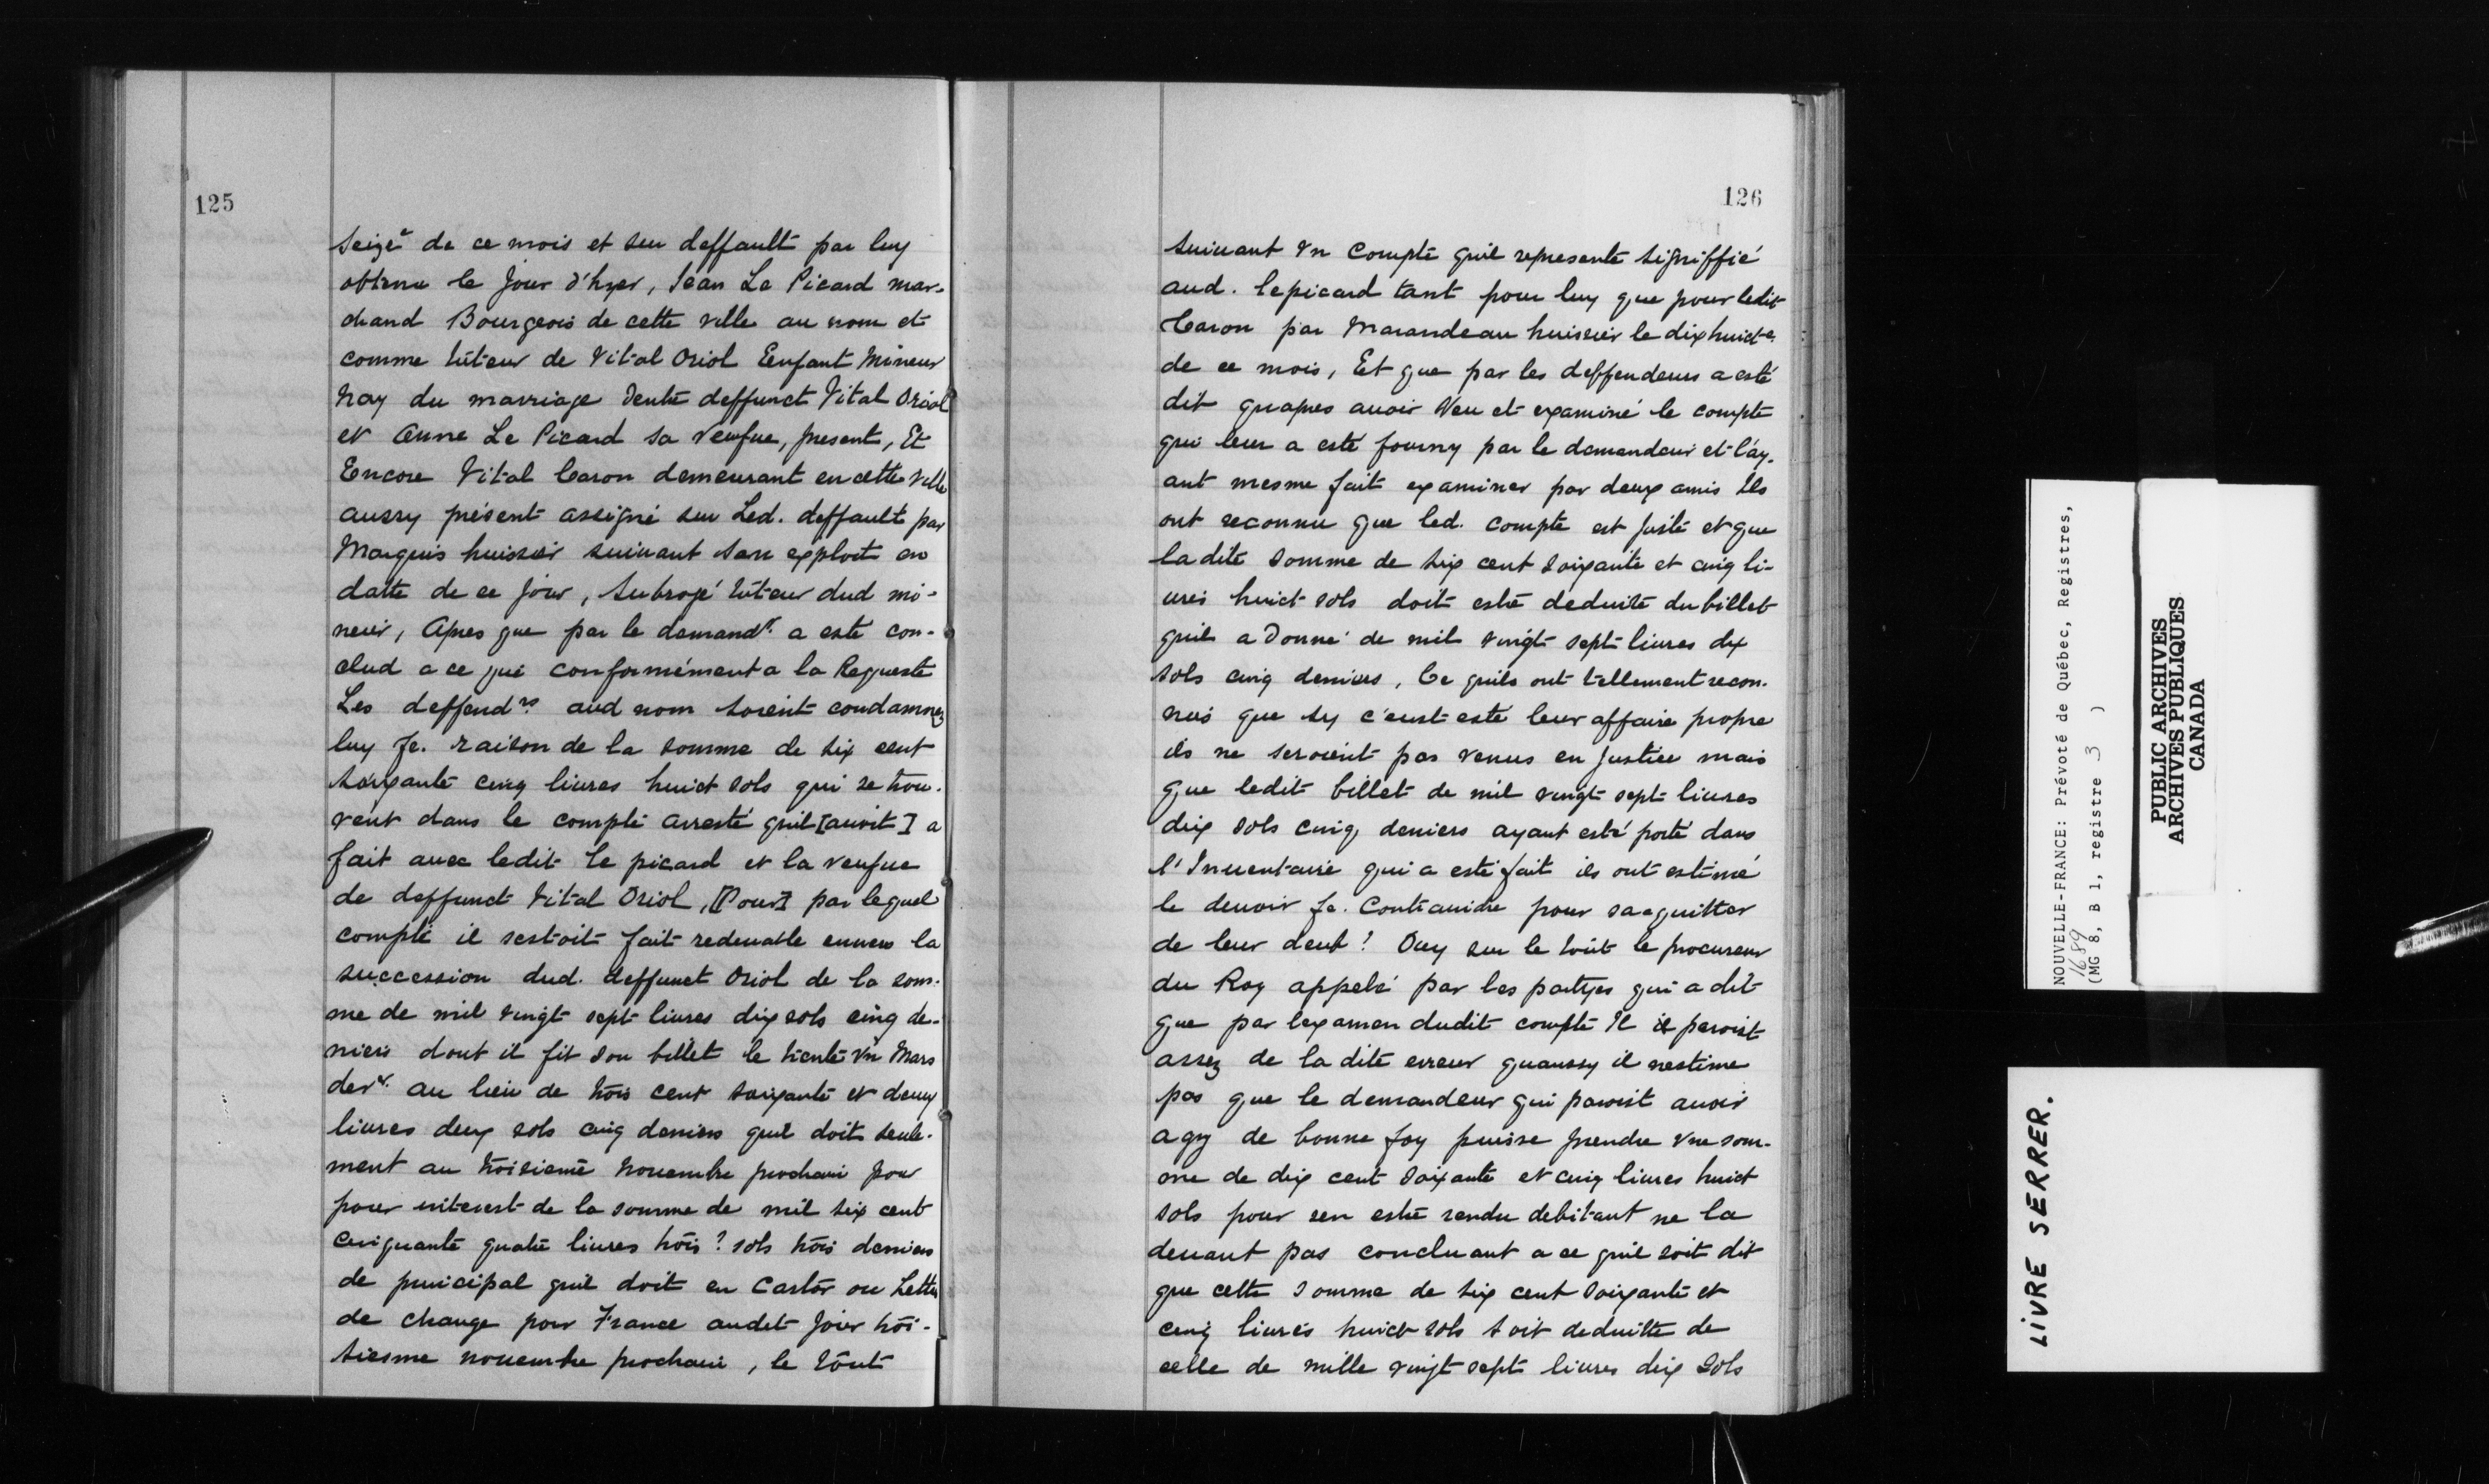 125
seize.e de ce mois et son deffault par luy
obtenu le Jour d'hyer, Jean Le Picard mar-
chand Bourgeois de cette ville au nom et
comme tuteur de Vital Oriol Eenfant Mineur
nay du marriage dentre deffunct Vital Oriol
et Anne Le Picard sa veufue, present, Et
Encore Vital Caron demeurant en cette ville
aussy présent assigné sur Led. deffault par
Marquis huissier suiuant son exploit en
datte de ce jour, Subrogé tuteur dud mi-
neur, Apres que par le demandr. a esté con-
clud a ce que conformément a la Requeste
Les deffendrs. aud nom soient condamnez
luy fe. raison de la somme de six cent
soixante cinq liures huict sols qui se trou-
vent dans le compte arresté quil [auoit] a
fait auec ledit Le picard et la veufue
de deffunct Vital Oriol, [Pour] par lequel
compte il sestoit fait redeuable enuers la
succession dud. deffunct Oriol de la som-
me de mil vingt sept liures dix sols cinq de-
niers dont il fit son billet le trente vn Mars
derr. au lieu de trois cent soixante et deux
liures deux sols cinq deniers quil doit seule-
ment au troisieme nouembre prochain pour
pour interest de la somme de mil six cent
cinquante quatre liures trois? sols trois deniers
de principal quil doit en Castor ou Lettre
de change pour France audit jour troi-
siesme nouembre prochain, le tout
126
suiuant vn Compte quil represente signiffié
aud. lepicard tant pour luy que pour ledit
Caron par Marandeau huissier le dixhuicte.
de ce mois, Et que par les deffendeurs a esté
dit quapres auoir Veu et examiné le compte
qui leur a esté fourny par le demandeur et l'ay-
ant mesme fait examiner par deux amis Ils
ont reconnu que led. compte est juste et que
ladite somme de six cent soixante et cinq li-
ures huict sols doit estre deduite du billet
quil a donné de mil vingt sept liures dix
sols cinq deniers, Ce quils ont tellement recon-
nus que sy c'eust esté leur affaire propre
ils ne seroient pas venus en Justice mais
que ledit billet de mil vingt sept liures
dix sols cinq deniers ayant esté porté dans
l'Inuentaire qui a esté fait ils ont estimé
le deuoir fe. Contraindre pour sacquitter
de leur deub? Ouy sur le tout le procureur
du Roy appelé par les partyes qui a dit
que par lexamen dudit compte Il il paroist
assez de la dite erreur quaussy il nestime
pas que le demandeur qui paroist auoir
agy de bonne foy puisse prendre vne som-
me de dix cent soixante et cinq liures huict
sols pour sen estre rendu debitant ne la
deuant pas concluant a ce quil soit dit
que cette somme de six cent soixante et
cinq liures huict sols soit deduitte de
celle de mille vingt sept liures dix sols
NOUVELLE-FRANCE: Prévoté de Québec, Registres,
1689
(MG 8, B 1, registre 3 )
PUBLIC ARCHIVES
ARCHIVES PUBLIQUES
CANADA
LIVRE SERRER.